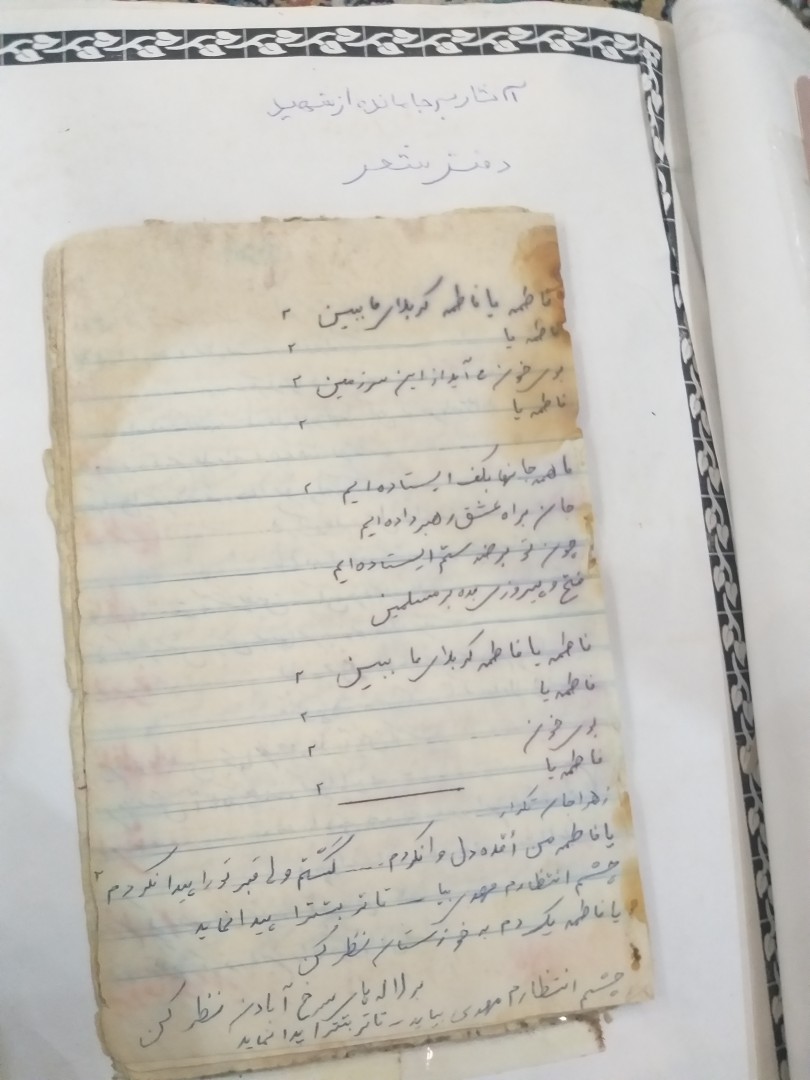 آثار برجا مانده از شهید
دفتر شعر
فاطمه یا فاطمه کربلای ما ببین ۲
فاطمه یا ۲
بوی خون می آید از این سرزمین ۲
فاطمه یا ۲
ما همه جانها بکف ایستاده ایم ۲
جان براه عشق رهبر داده ایم
چون تو بر ضد ستم ایستاده ایم
فتح و پیروزی بده بر مسلمین
فاطمه یا فاطمه کربلای ما ببین ۲
فاطمه یا ۲
بوی خون ۲
فاطمه یا ۲
زهرا جان تکرار
یا فاطمه من عقده دل وا نکردم ---- گشتم ولی قبر تو را پیدا نکردم ۲
چشم انتظارم مهدی بیا --- تا تربتت را پیدا نماید
یا فاطمه یک دم به خوزستان نظر کن
بر لاله های سرخ آبادان نظر کن
چشم انتظارم مهدی بیاید -- تا تربتت را پیدا نماید